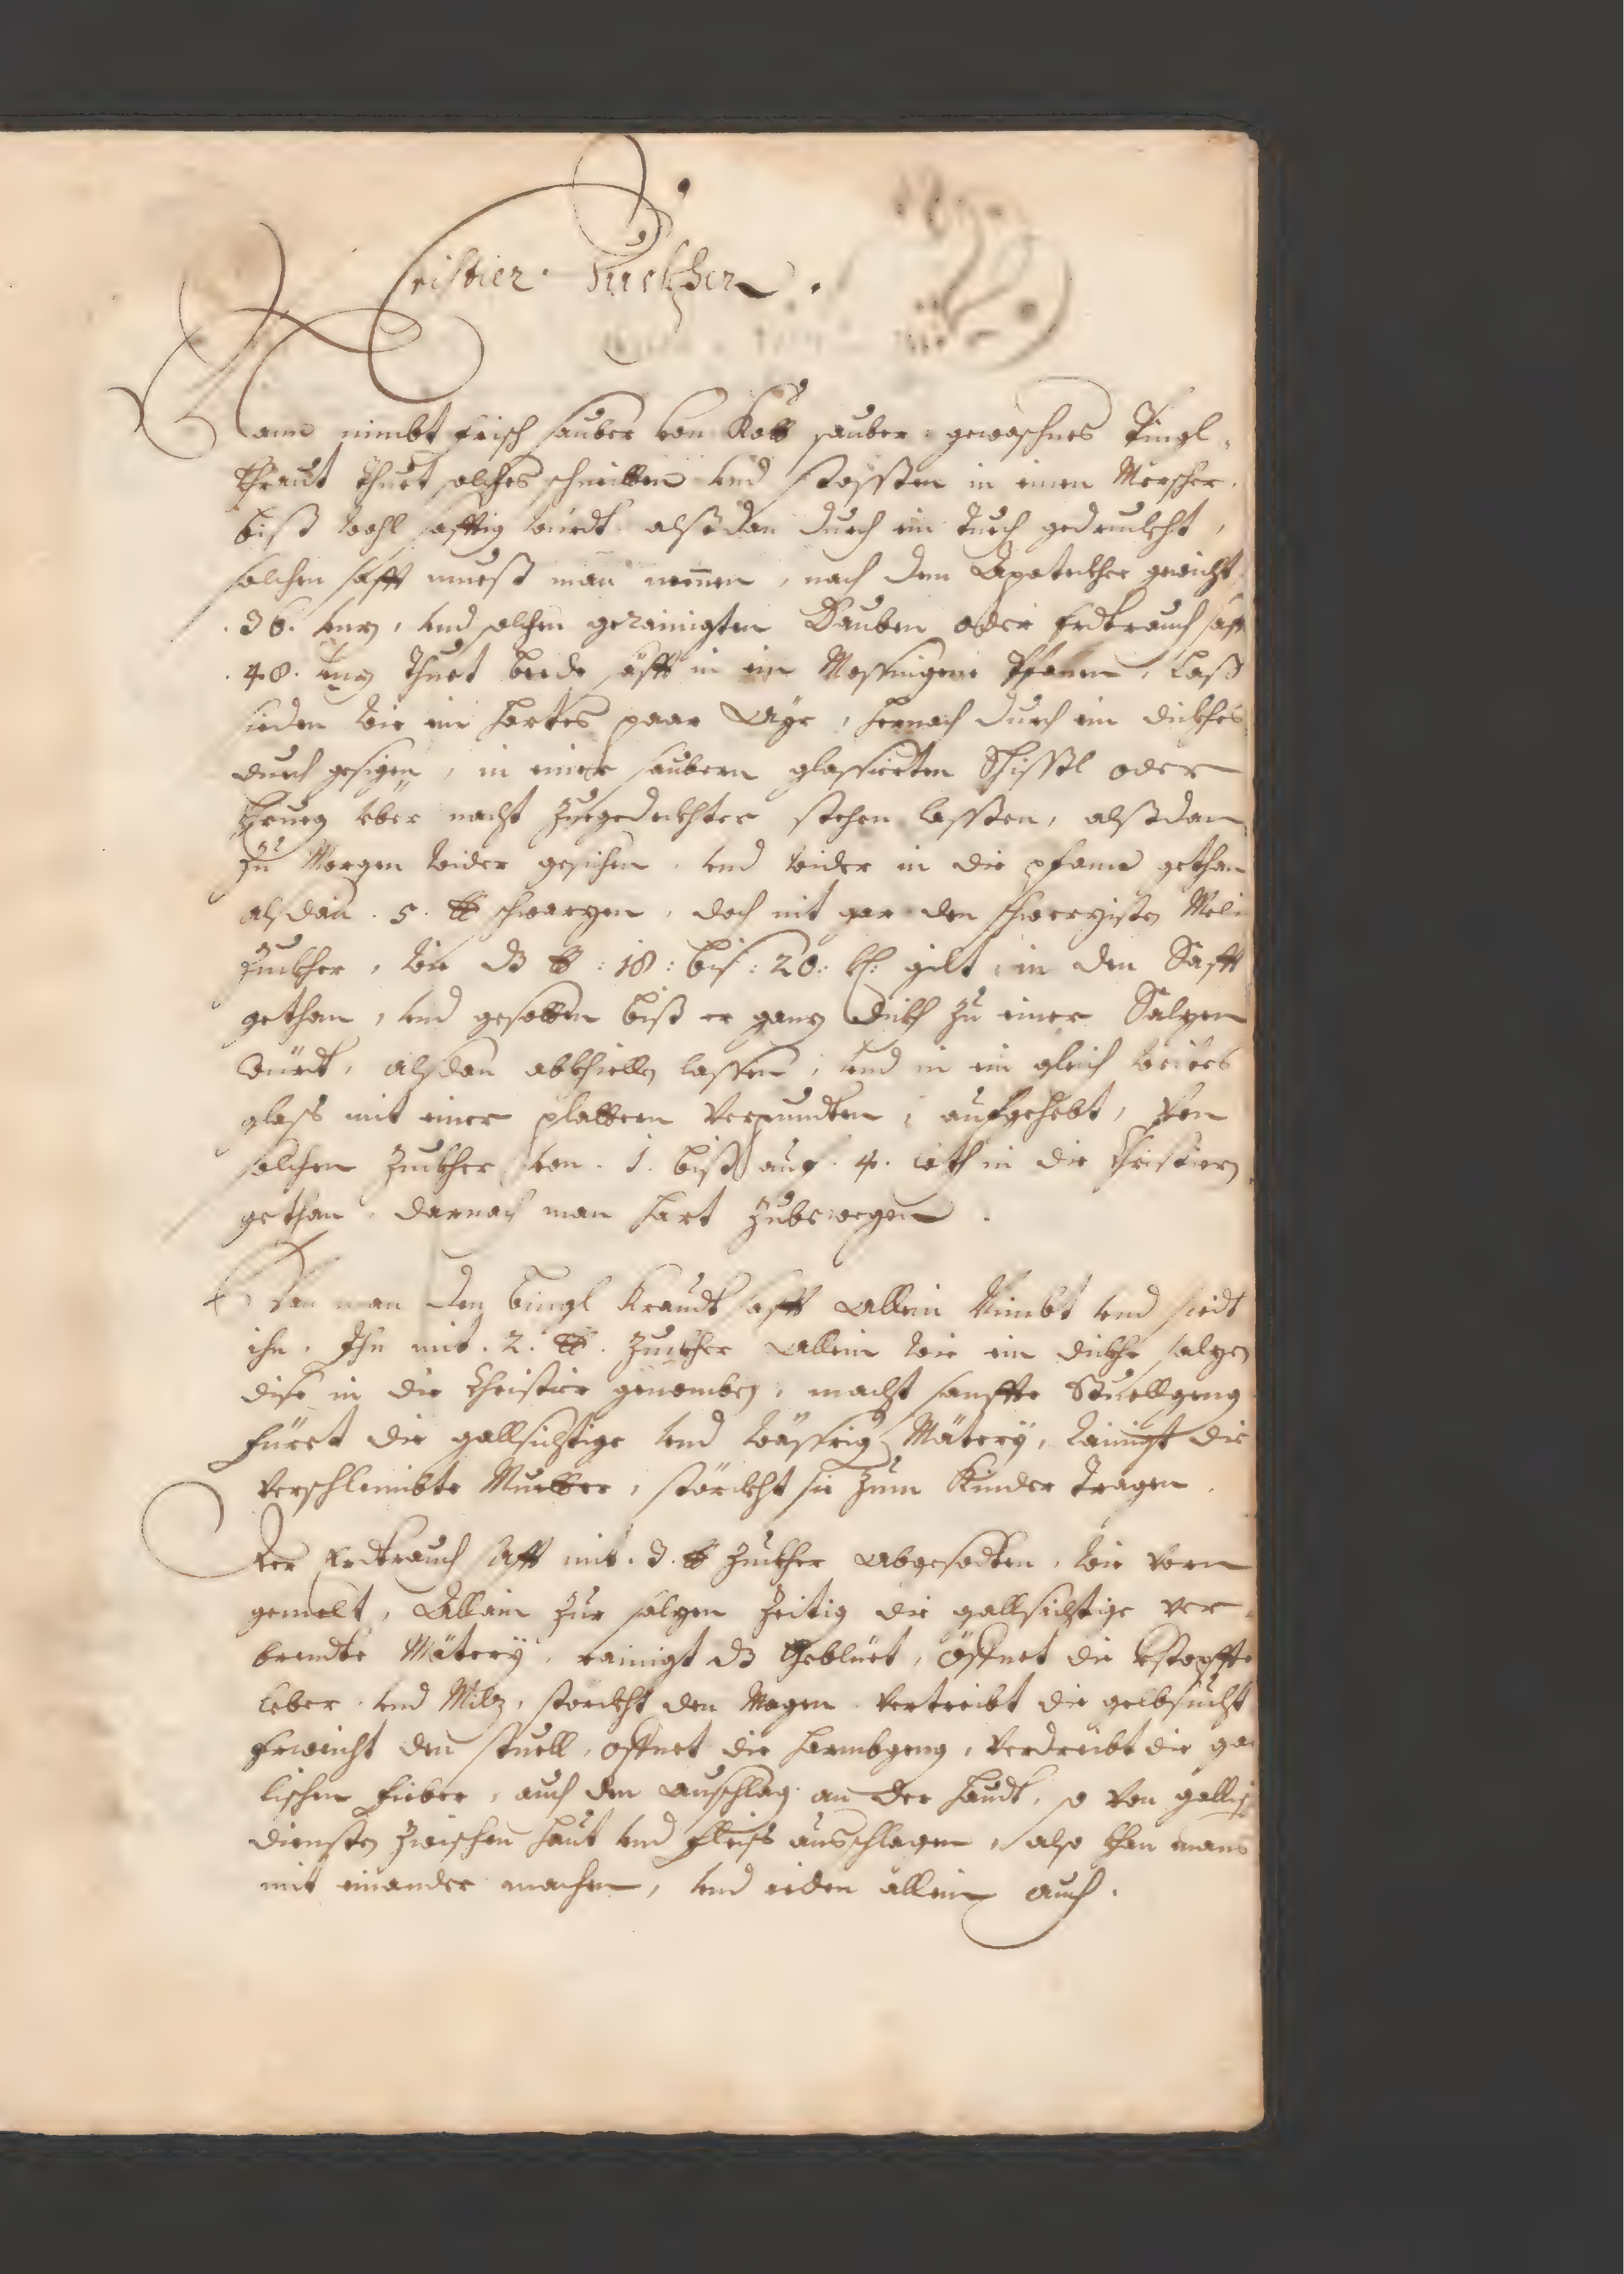 Cristier Zuckher.
Mann nimbt frisch sauber von Kott sauber gewaschnes Pingl¬
khraut thuet solches schneitten vnd stossen in einen Merscher,
biß wohl safftig würdt alßdan durch ein tuech gedruckht,
solchen safft mueß man nemen, nach dem Apoteckher gewicht
.36. vnz, vnd solchen gerainigten Tauben oder Erdtrauch saft
.48. vnz thuet beede säfft in ein Messingene Pfannen, Laß
sieden wie ein hartes paar Ayr, hernach durch ein dickhes
durch gesigen, in einer saubern glassierten Schissl oder
khrueg über nacht zuegedeckhter stehen lassen, alßdan
zu Morgen wider gesichen, vnd wider in die pfann gethan
alsdan .5. ℔ schwarzen, doch nit gar den schwerzisten Meli
Zuckher, wie dz ℔ :18: biß: 20: kh: gilt, in den Safft
gethan, vnd gesotten biß er ganz dickh zu einer Salzen
würdt, alsdan abkhiellen lassen, vnd in ein gleich weites
glaß mit einer plattern verpundten, aufgehebt, Von
solchen Zuckher von .1. biß auf .4. loth in die Christiern
gethan, darnach man hart zubewegen.
Wan man den bingl Kraudt safft allein Nimbt vnd siedt
ihn, Ihn mit .2. ℔. Zuckher allein wie ein dickhe salzen
dise in die Christier genomben, macht sanffte Stuellgeng
füert die gallsichtige vnd wässrige Mäterÿ, rainigt die
verschleimbte Muetter, störckht sie zum Kinder tragen.
Der Erdtrauch safft mit .3. ℔ Zuckher abgesodten, wie vorn
gemelt, Allain zur salzen zeitig die gallsichtige ver¬
brendte Mäterÿ, rainigt dz Geblüet, öffnet die verstopffte
Leber vnd Milz, storckht den Magen vertreibt die gelbsucht
Erweicht den stuell, öffnet die Harmbgeng, verdreibt die gal
lischen Fieber, auch den Ausschlag an der Haudt, so von gallig
diensten zwischen Haut vnd Fleisch ausschlagen, also khan mans
mit einander machen, vnd ieden allein auch.